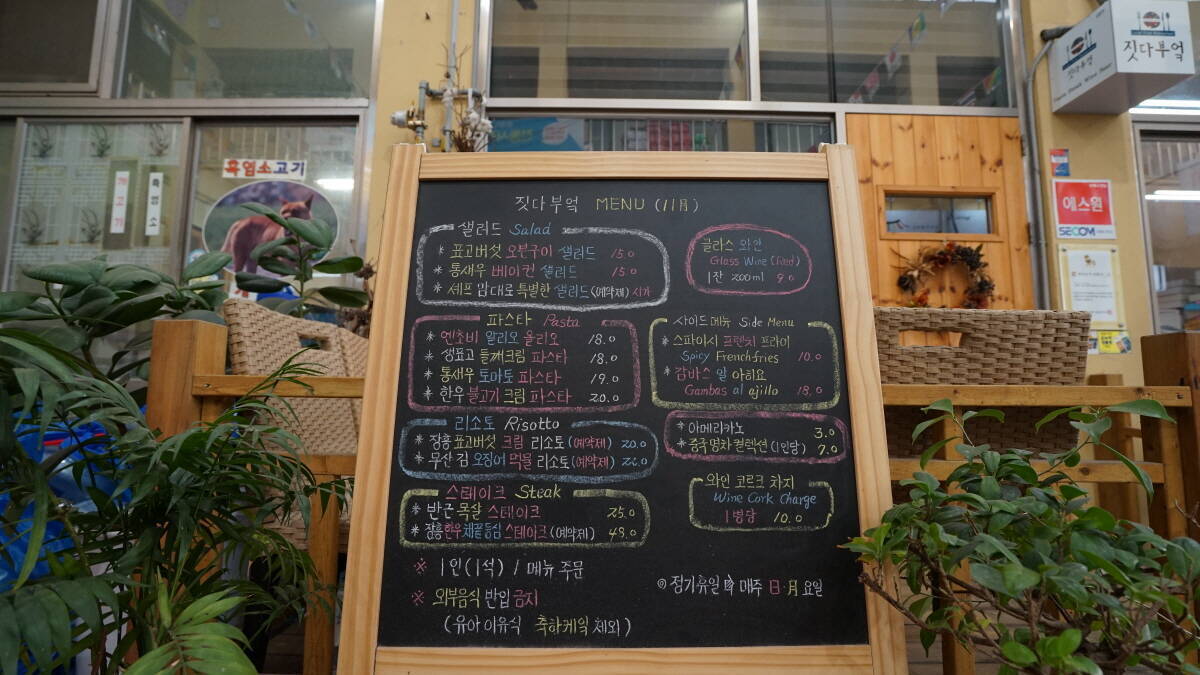 짓다부엌
짓다부엌
흑염소고기
흑염소
에스원
SECOM
짓다부엌 MENU (11月)
샐러드 Salad
* 표고버섯 오븐구이 샐러드 15.0
* 통새우 베이컨 샐러드 15.0
* 셰프 맘대로 특별한 샐러드 (예약제) 시가
글라스 와인
Glass Wine (Red)
1잔 200ml 9.0
파스타 Pasta
* 엔초비 알리오 올리오 18.0
* 생표고 들깨크림 파스타 18.0
* 통새우 토마토 파스타 19.0
* 한우 불고기 크림 파스타 20.0
사이드 메뉴 Side Menu
* 스파이시 프렌치 프라이
Spicy French-fries 10.0
* 감바스 알 아히요
Gambas al ajillo 18.0
리소토 Risotto
* 장흥 표고버섯 크림 리소토 (예약제) 20.0
* 무산 김 오징어 먹물 리소토 (예약제) 22.0
* 아메리카노 3.0
* 중국 명차 컬렉션 (1인당) 7.0
스테이크 Steak
* 반근 목살 스테이크 25.0
* 장흥 한우 채끝등심 스테이크 (예약제) 49.0
와인 코르크 차지
Wine Cork Charge
1병당 10.0
※ 1인(1석) / 메뉴 주문
※ 외부음식 반입 금지
(유아 이유식 축하케익 제외)
◎ 정기휴일 매주 日·月 요일